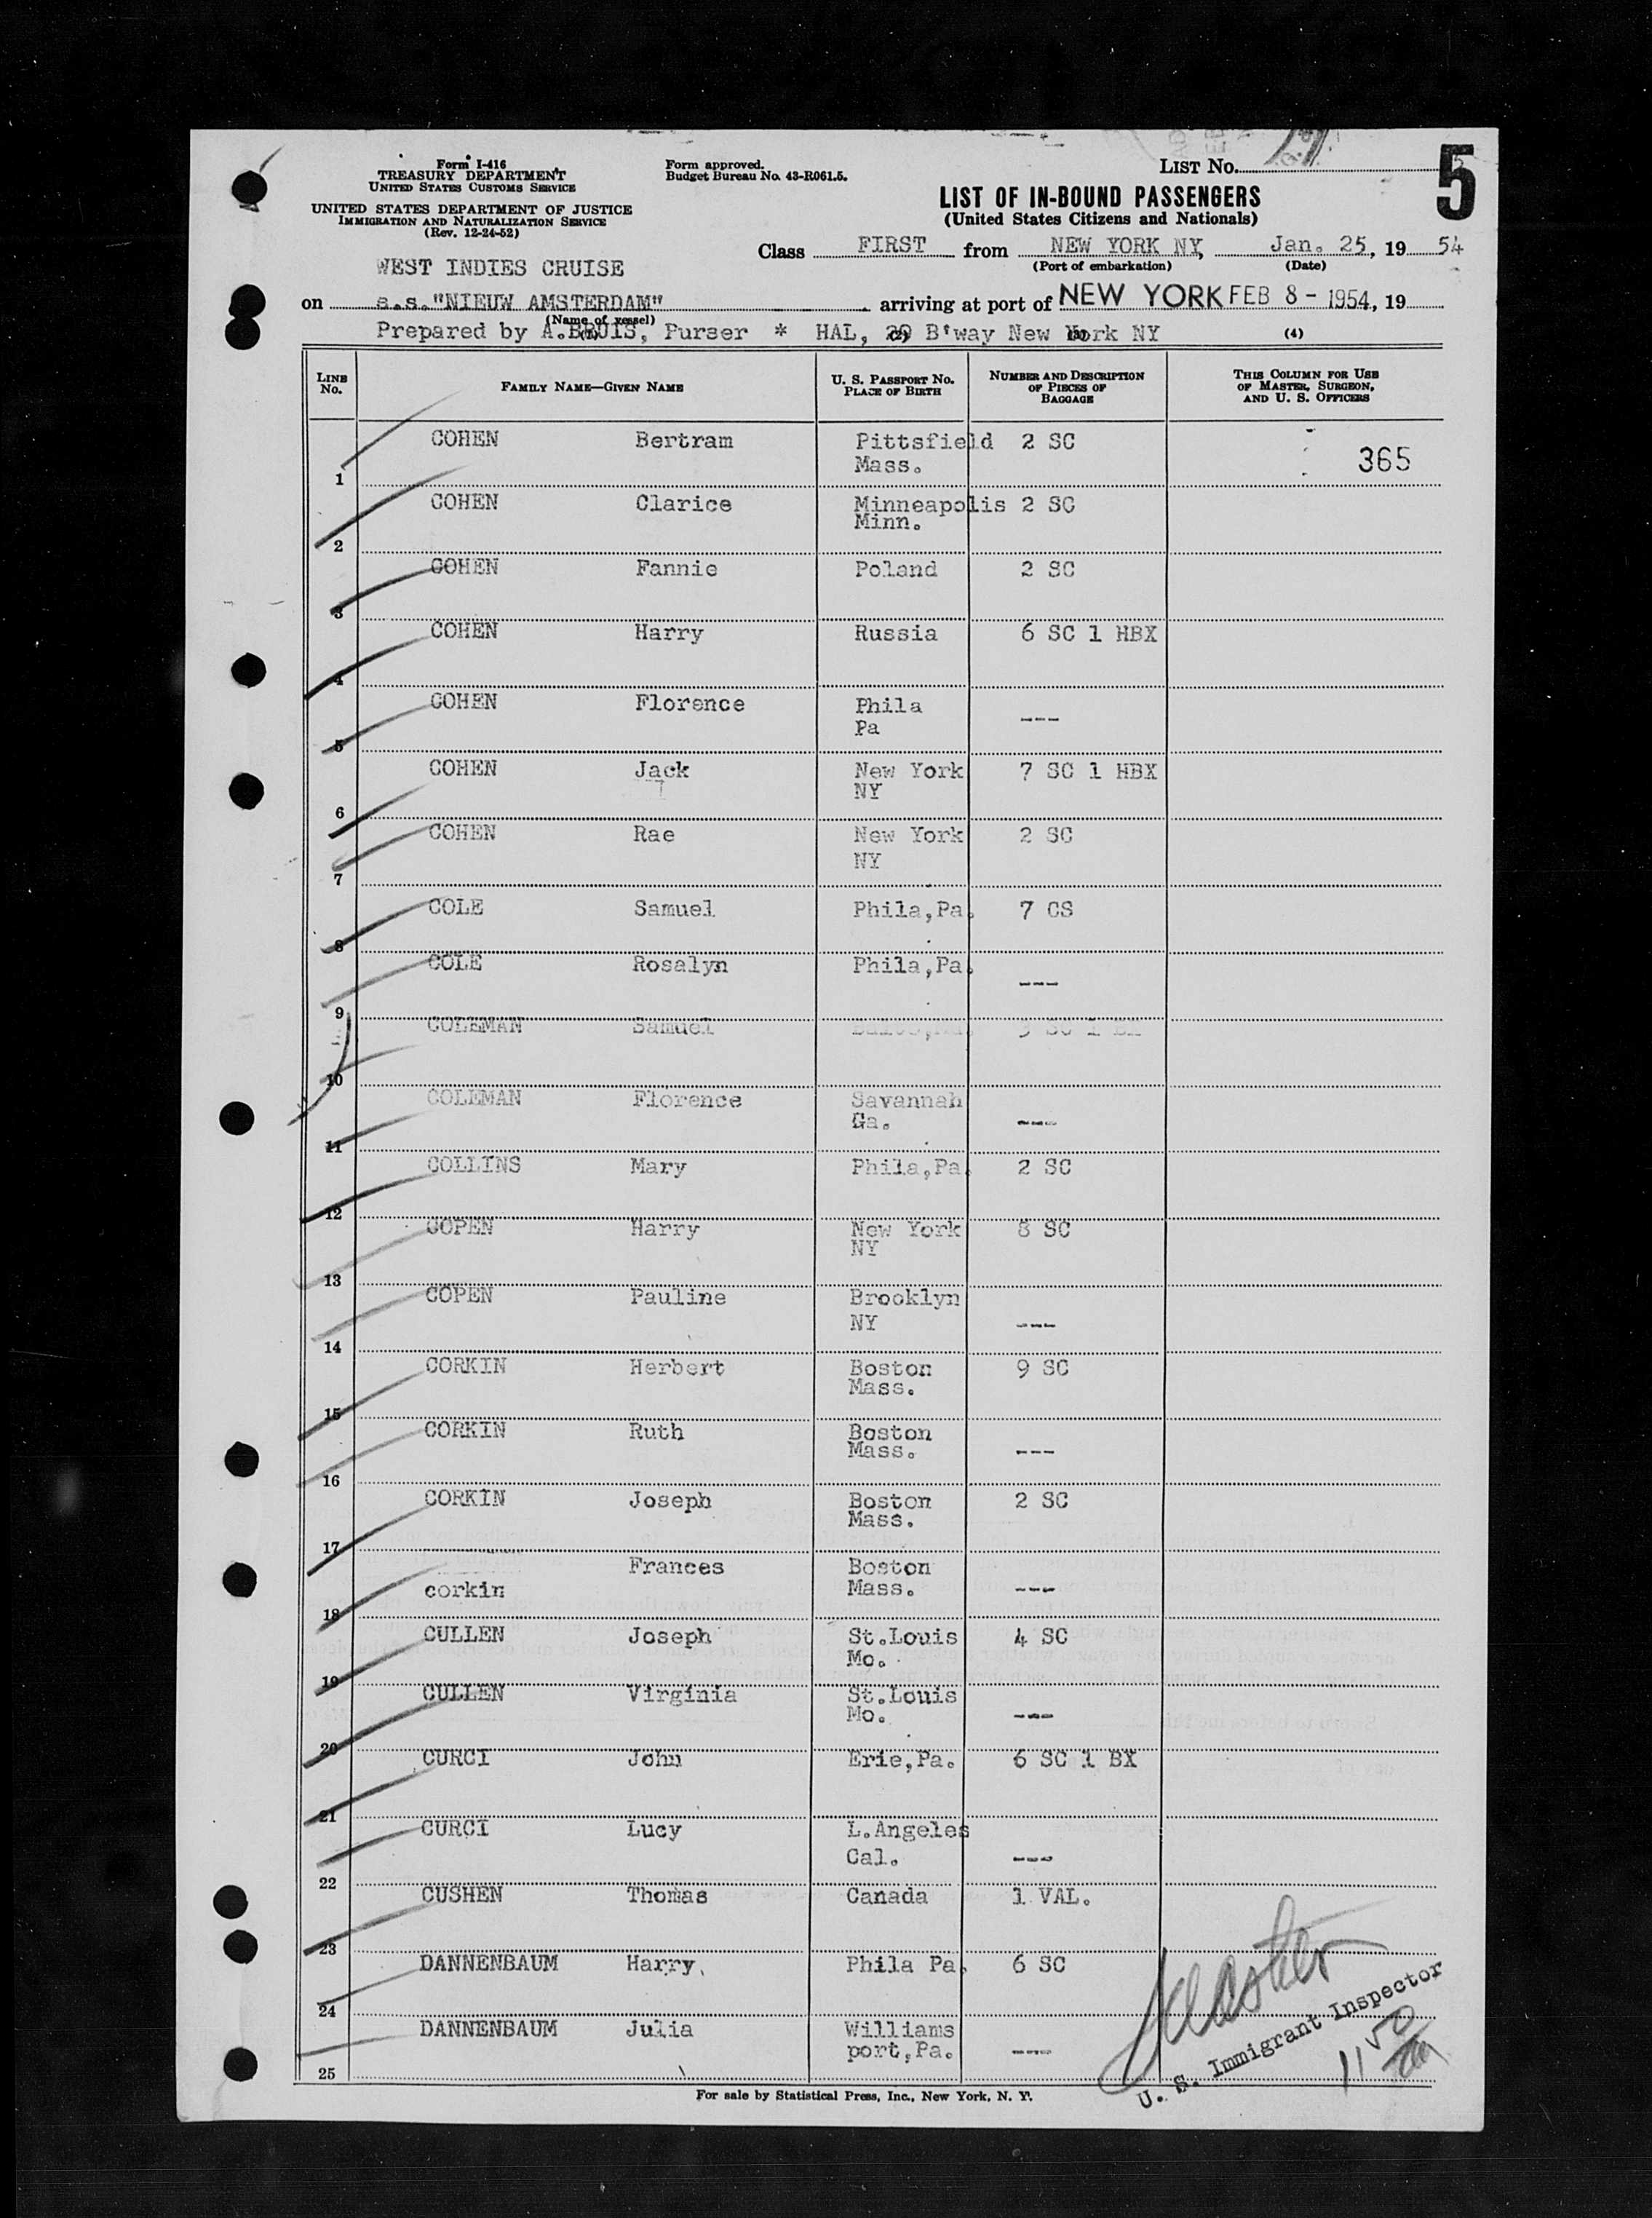 Form I-416
TREASURY DEPARTMENT
UNITED STATES CUSTOMS SERVICE
UNITED STATES DEPARTMENT OF JUSTICE
IMMIGRATION AND NATURALIZATION SERVICE
(Rev. 12-24-52)
Form approved.
Budget Bureau No. 43-R061.5.
LIST No.
5
LIST OF IN-BOUND PASSENGERS
(United States Citizens and Nationals)
Class FIRST from NEW YORK NY, Jan. 25, 19 54
(Port of embarkation) (Date)
WEST INDIES CRUISE
on s.s. "NIEUW AMSTERDAM" arriving at port of NEW YORK FEB 8 - 1954, 19
(Name of vessel)
Prepared by A.BRUIS, Purser * HAL, 29 B'way New York NY (4)
LINE No. FAMILY NAME—GIVEN NAME U. S. PASSPORT No. PLACE OF BIRTH NUMBER AND DESCRIPTION OF PIECES OF BAGGAGE THIS COLUMN FOR USE OF MASTER, SURGEON, AND U. S. OFFICERS
1 COHEN Bertram Pittsfield Mass. 2 SC 365
2 COHEN Clarice Minneapolis Minn. 2 SC
3 COHEN Fannie Poland 2 SC
4 COHEN Harry Russia 6 SC 1 HBX
5 COHEN Florence Phila Pa ---
6 COHEN Jack New York NY 7 SC 1 HBX
7 COHEN Rae New York NY 2 SC
8 COLE Samuel Phila,Pa. 7 CS
9 COLE Rosalyn Phila,Pa. ---
10 COLEMAN Samuel
11 COLEMAN Florence Savannah Ga. ---
12 COLLINS Mary Phila,Pa. 2 SC
13 COPEN Harry New York NY 8 SC
14 COPEN Pauline Brooklyn NY ---
15 CORKIN Herbert Boston Mass. 9 SC
16 CORKIN Ruth Boston Mass. ---
17 CORKIN Joseph Boston Mass. 2 SC
18 corkin Frances Boston Mass. ---
19 CULLEN Joseph St.Louis Mo. 4 SC
20 CULLEN Virginia St.Louis Mo. ---
21 CURCI John Erie,Pa. 6 SC 1 BX
22 CURCI Lucy L.Angeles Cal. ---
23 CUSHEN Thomas Canada 1 VAL.
24 DANNENBAUM Harry Phila Pa. 6 SC
25 DANNENBAUM Julia Williams port,Pa. ---
U. S. Immigrant Inspector
For sale by Statistical Press, Inc., New York, N. Y.